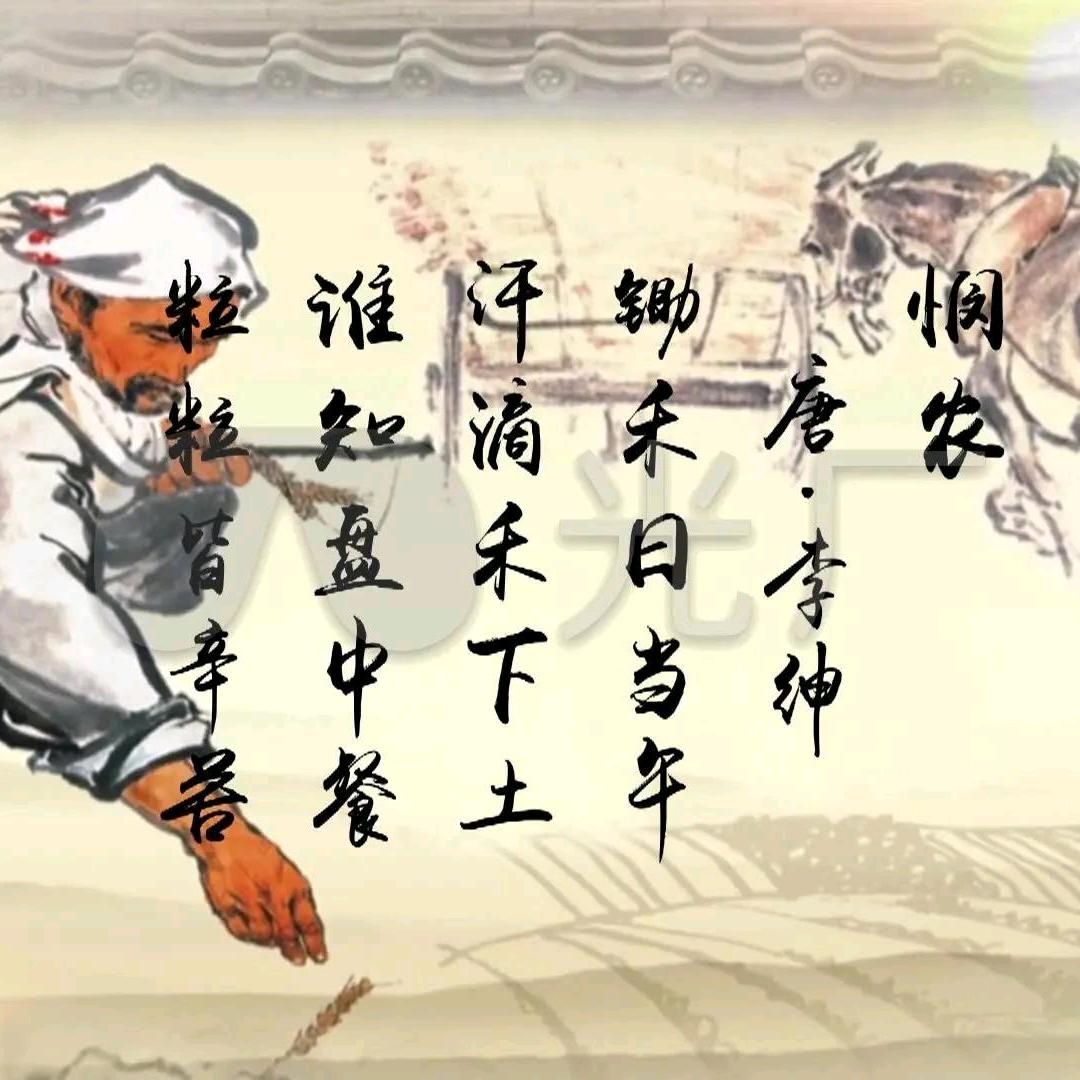 悯农
唐·李绅
锄禾日当午
汗滴禾下土
谁知盘中餐
粒粒皆辛苦
光厂